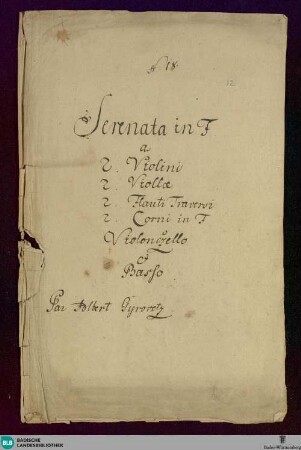 N 18.
12
Serenata in F
a
2. Violini
2. Violle
2. Flauti Traversi
2. Corni in F
Violonzello
e
Basso
Par Albert Gyrowetz
BLB BADISCHE
LANDESBIBLIOTHEK
Baden-Württemberg